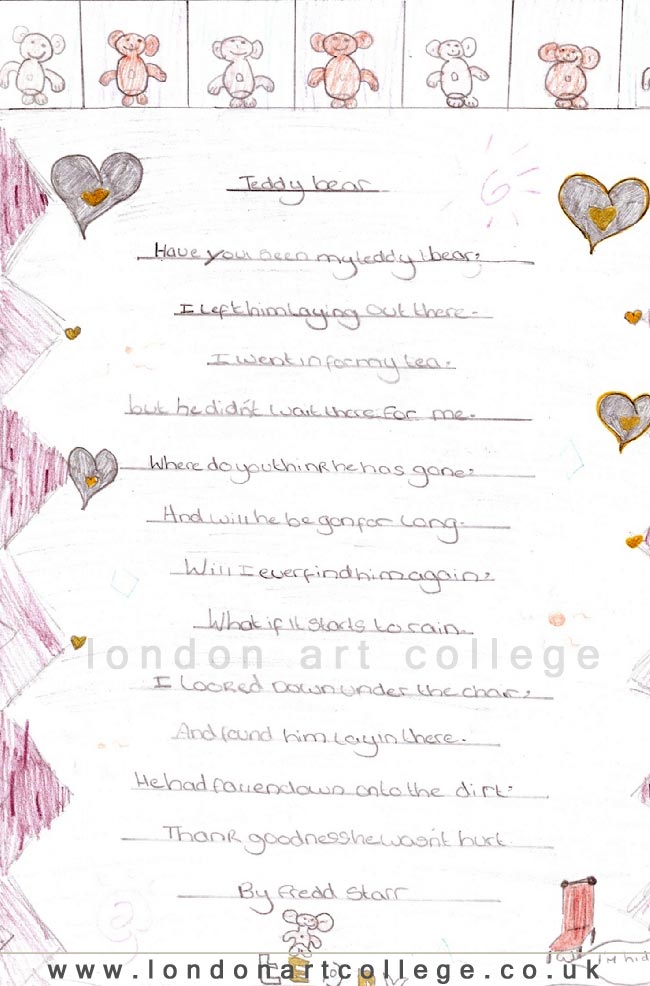 Teddy bear
Have you seen my teddy bear,
I left him laying out there.
I went in for my tea.
but he didn't wait there for me.
Where do you think he has gone,
And will he be gon for long.
Will I ever find him again,
What if it starts to rain.
london art college
I looked Down under the chair,
And found him layin there.
He had fallen down onto the dirt,
Thank goodness he wasn't hurt.
By Fredd Starr
I'm hid
www.londonartcollege.co.uk